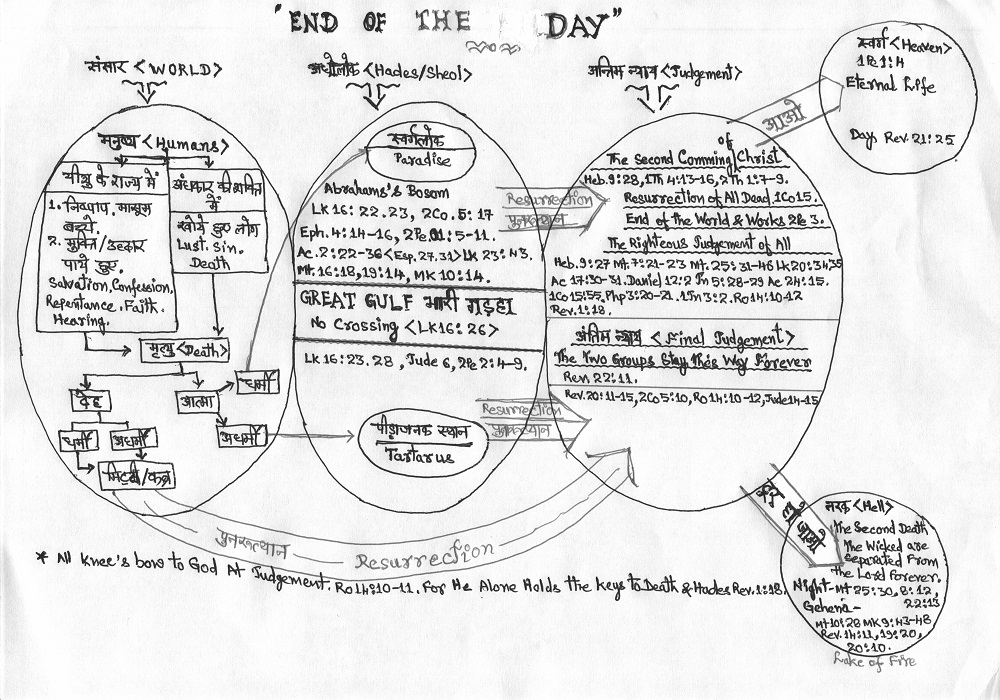 "END OF THE DAY"
संसार <WORLD>
अधोलोक <Hades/Sheol>
अन्तिम न्याय <Judgement>
स्वर्ग <Heaven>
1Pe1:4
Eternal Life
Day, Rev. 21:25
आओ
मनुष्य <Humans>
यीशु के राज्य में
1. निष्पाप, मासूम
बच्चे.
2. मुक्ति/उद्धार
पाये हुए.
Salvation, Confession,
Repentance, Faith.
Hearing.
अंधकार की शक्ति
में
खोये हुए लोग
Lust. Sin.
Death
मृत्यु <Death>
देह
आत्मा
धर्मी
अधर्मी
धर्मी
अधर्मी
मिट्टी/कब्र
स्वर्गलोक
Paradise
Abrahams's Bosom
LK 16:22.23, 2Co. 5:17
Eph. 4:14-16, 2Pe.01:5-11.
Ac. 2:22-36 <Esp. 27.31> LK 23:43.
Mt. 16:18, 19:14, MK 10:14.
GREAT GULF भारी गड़हा
No Crossing <LK16:26>
LK 16:23.28, Jude 6, 2Pe 2:4-9.
पीड़ाजनक स्थान
Tartarus
Resurrection
पुनरूत्थान
Resurrection
पुनरूत्थान
of
The Second Comming Christ
Heb. 9:28, 1Th 4:13-16, 2Th 1:7-9.
Resurrection of All Dead, 1Co15.
End of the World & Works 2Pe 3.
The Righteous Judgement of All
Heb. 9:27 Mt. 7:21-23 Mt. 25:31-46 LK20:34,35
Ac 17:30-31. Daniel 12:2 Jn 5:28-29 Ac 24:15.
1Co15:55, Php3:20-21. 1Jn3:2. Ro14:10-12
Rev. 1:18.
अंतिम न्याय <Final Judgement>
The Two Groups Stay This Way Forever
Rev 22:11.
Rev. 20:11-15, 2Co5:10, Ro14:10-12, Jude14-15
दूर हो जाओ
नरक <Hell>
The Second Death
The Wicked are
Separated From
the Lord Forever.
Night-Mt 25:30, 8:12,
22:13
Gehena-
Mt10:28 MK 9:43-48
Rev. 14:11, 19:20,
20:10.
Lake of Fire
पुनरूत्थान Resurrection
* All Knee's bow to God At Judgement. Ro14:10-11. For He Alone Holds the keys to Death & Hades Rev. 1:18.